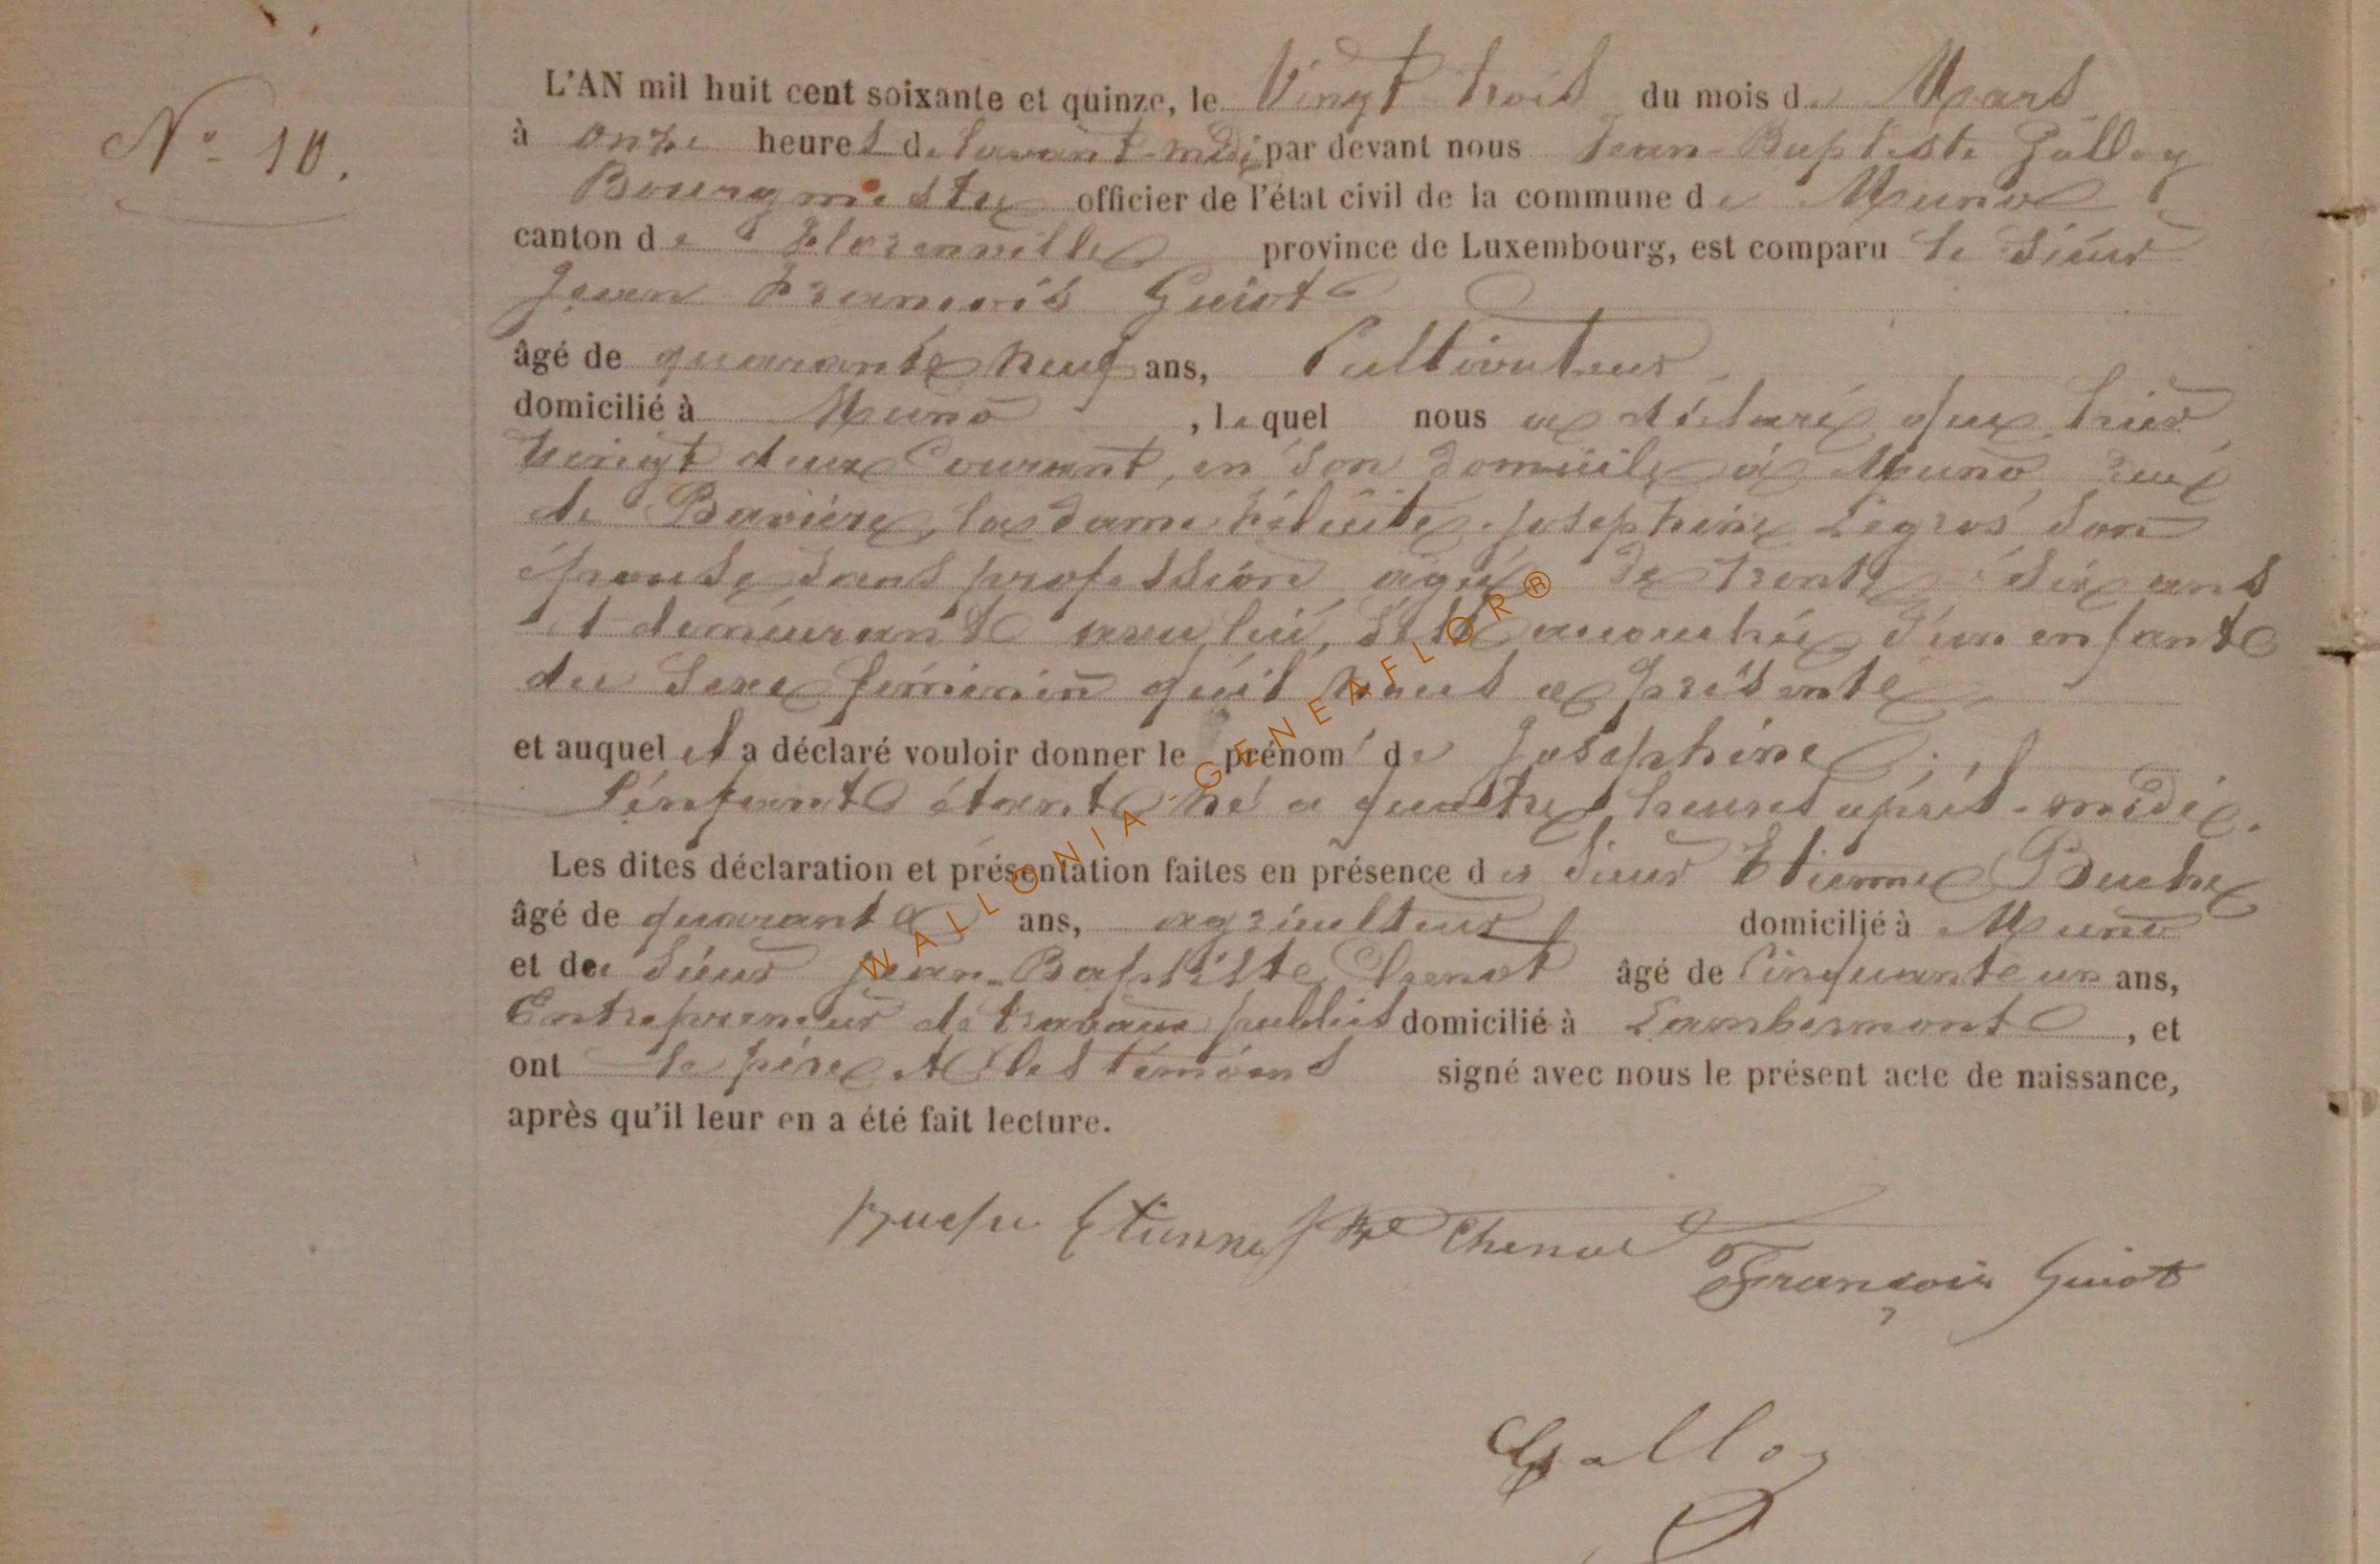 N° 10.
L'AN mil huit cent soixante et quinze, le Vingt trois du mois de Mars
à onze heures de l'avant-midi par devant nous Jean-Baptiste Galloy
Bourgmestre officier de l'état civil de la commune de Muno
canton de Florenville province de Luxembourg, est comparu le Sieur
Jean François Guiot
âgé de quarante neuf ans, Cultivateur
domicilié à Muno, lequel nous a déclaré que hier
vingt deux Courant, en son domicile à Muno, rue
de Bavière, la dame Félicité Josephine Legros son
épouse sans profession âgée de trente six ans
et demeurant avec lui, est accouchée d'un enfant
du sexe féminin qu'il nous a présenté
et auquel il a déclaré vouloir donner le prénom de Joséphine ;
L'enfant étant né a quatre heures après-midi.
Les dites déclaration et présentation faites en présence du Sieur Etienne Buche
âgé de quarante ans, agriculteur domicilié à Muno
et du Sieur Jean-Baptiste Chenot âgé de Cinquante un ans,
Entrepreneur de travaux publics domicilié à Lambermont, et
ont le père et les témoins signé avec nous le présent acte de naissance,
après qu'il leur en a été fait lecture.
Buche Etienne J Bte Chenot
François Guiot
Galloy
WALLONIA-GENEAFLOR®